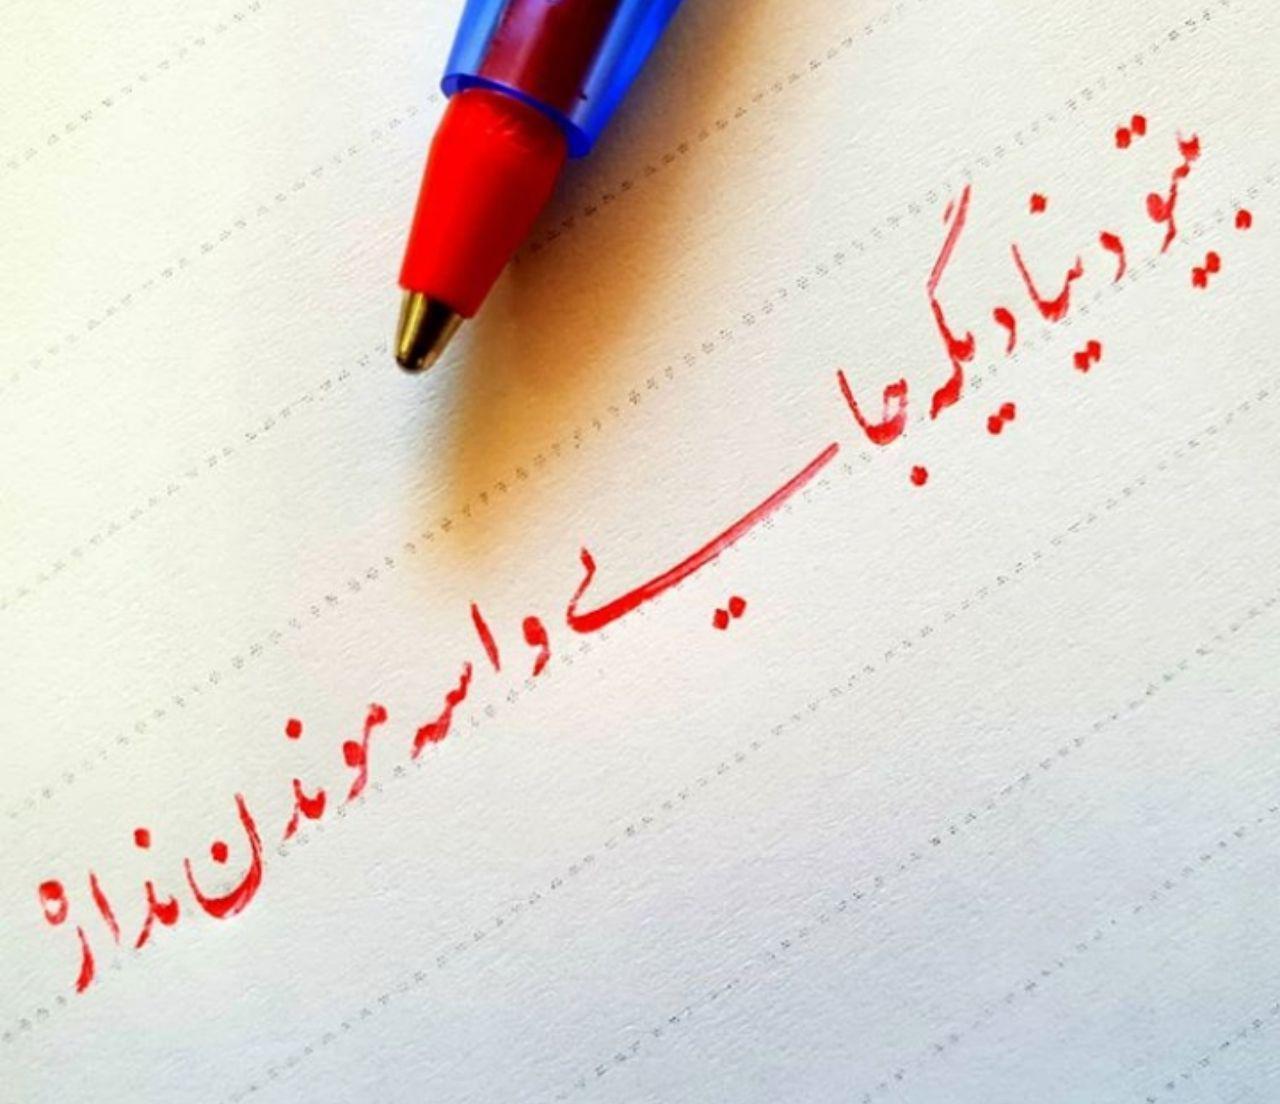 بیتو دنیا دیگه جایی واسه موندن نداره